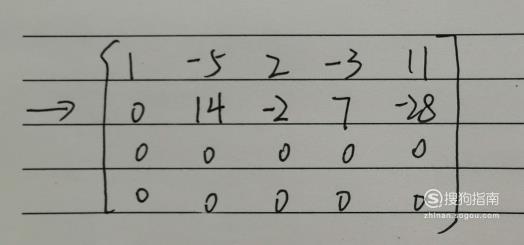 1 -5 2 -3 11
→ 0 14 -2 7 -28
0 0 0 0 0
0 0 0 0 0
搜狗指南
zhinan.sogou.com